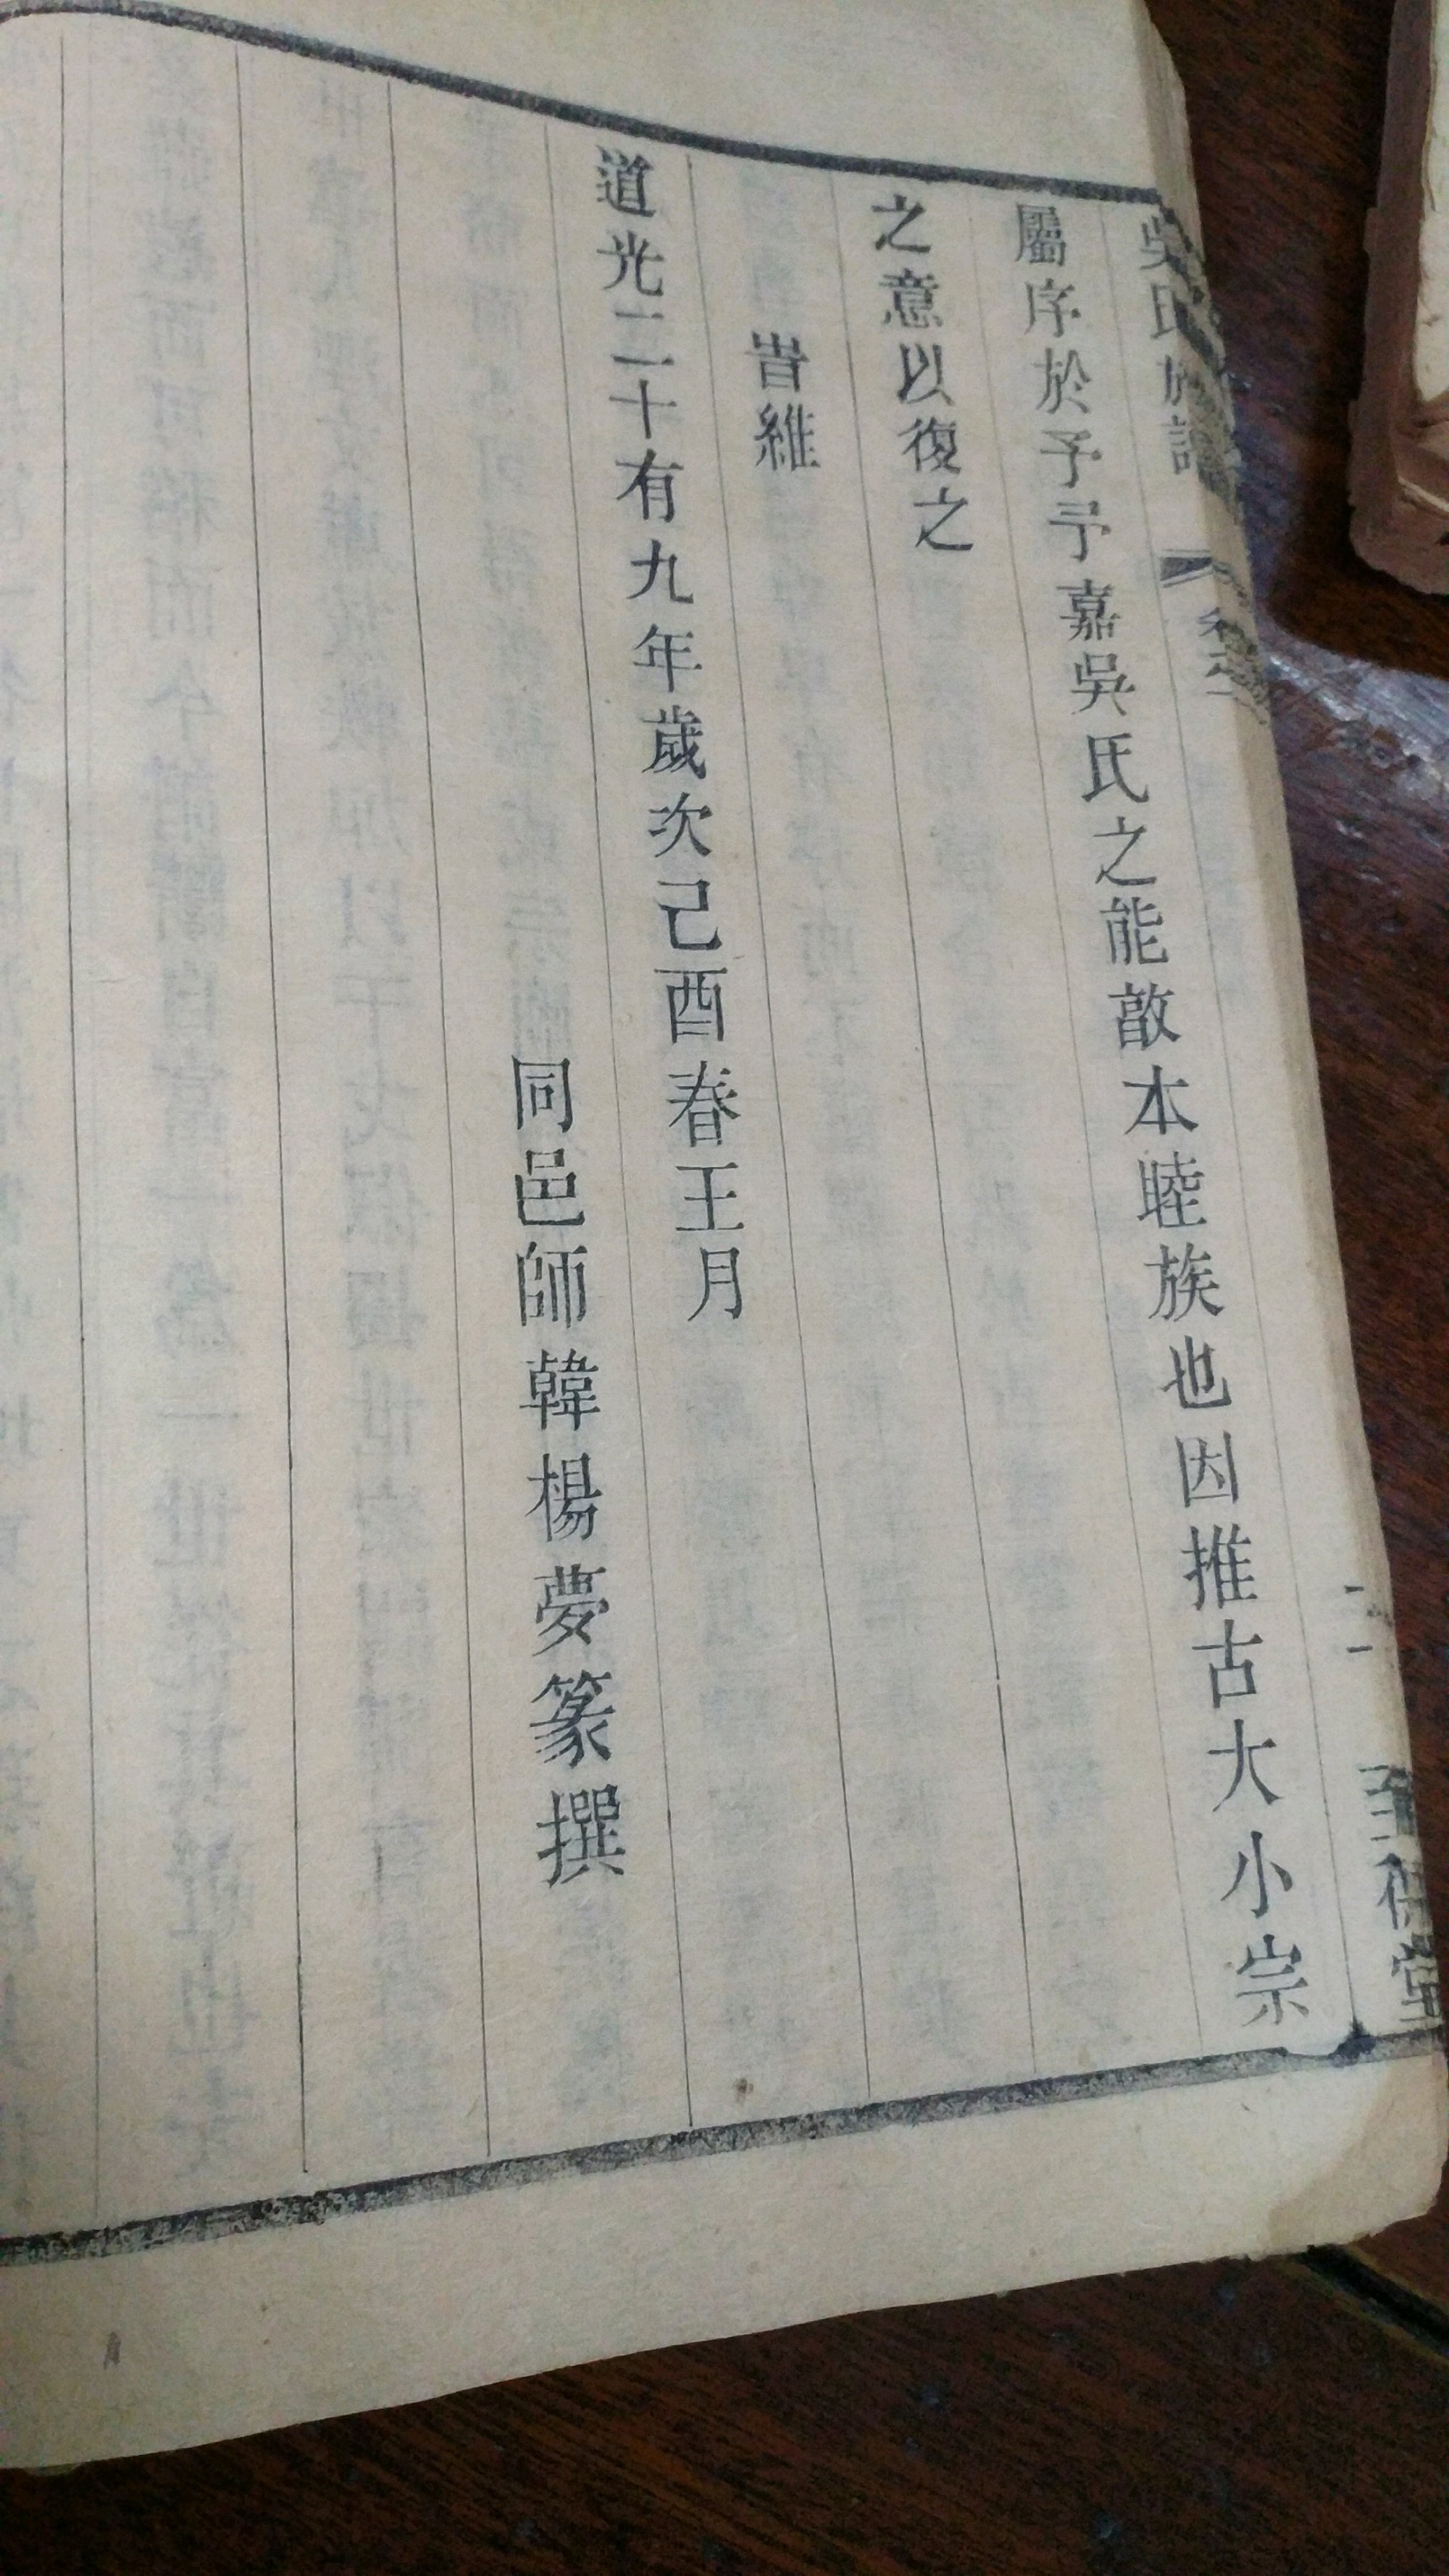 吳氏族譜
至德堂
屬序於予予嘉吳氏之能敦本睦族也因推古大小宗
之意以復之
旹維
道光二十有九年歲次己酉春王月
同邑師韓楊夢篆撰